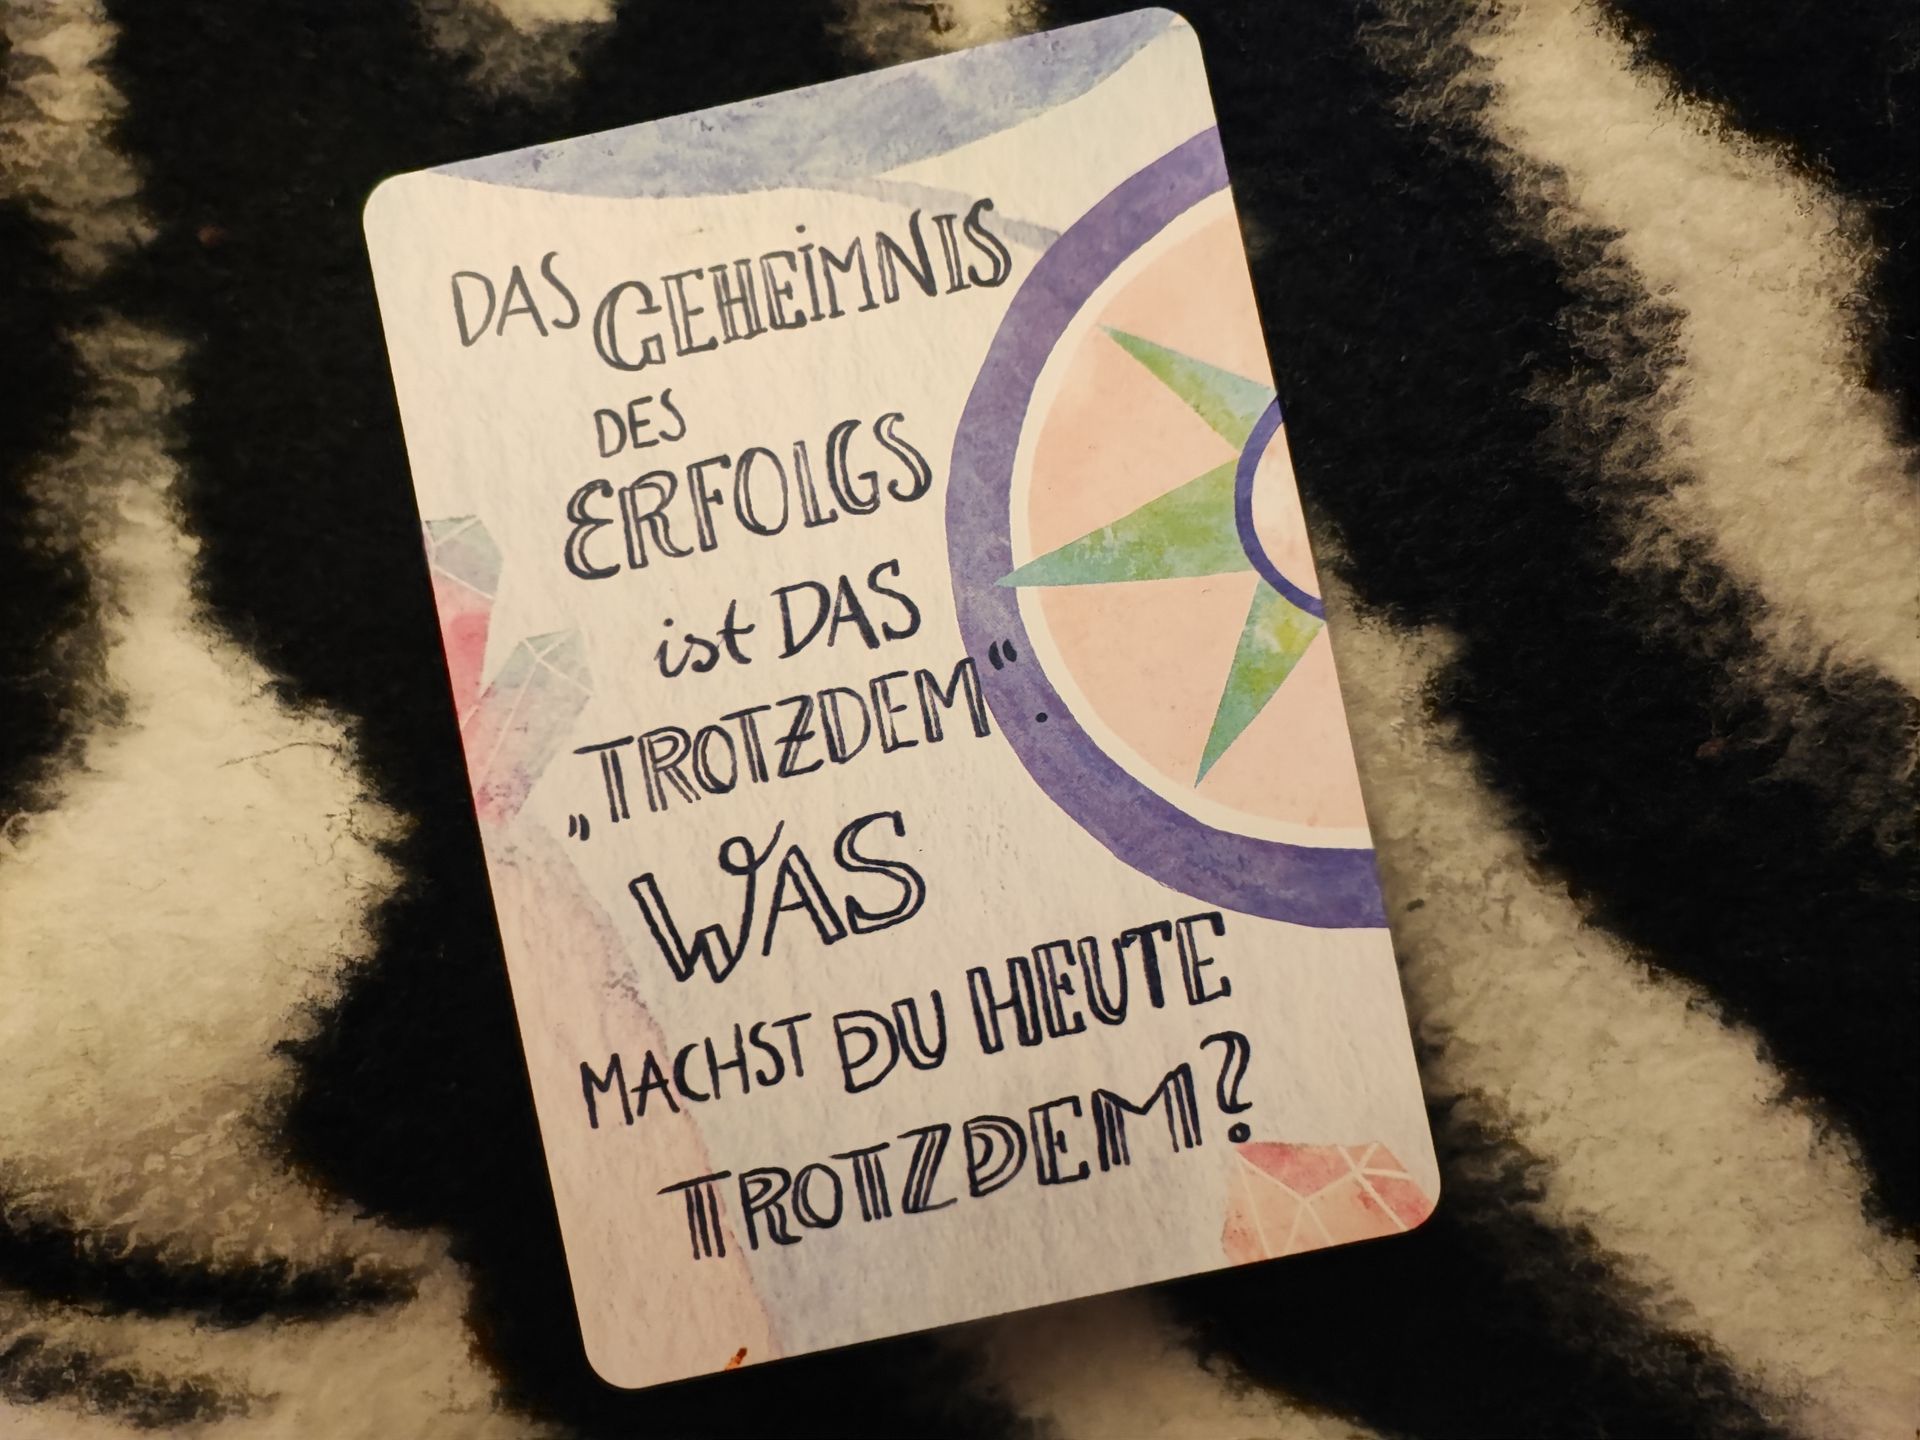 DAS GEHEIMNIS
DES
ERFOLGS
ist DAS
„TROTZDEM“.
WAS
MACHST DU HEUTE
TROTZDEM?